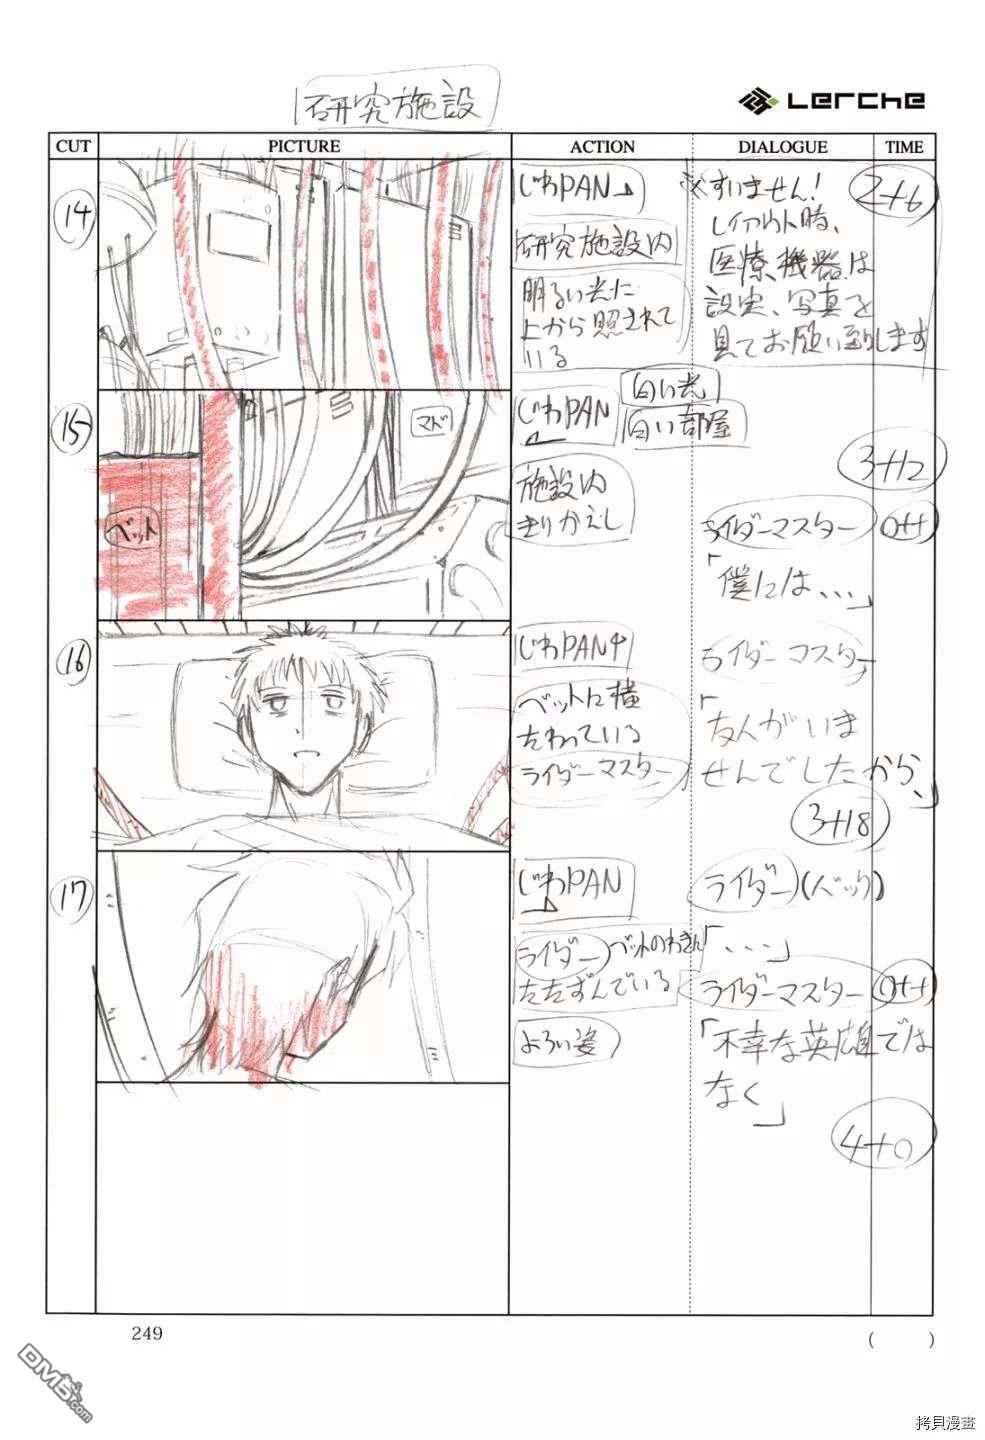 研究施設
Lerche
CUT PICTURE ACTION DIALOGUE TIME
14
じわPAN
研究施設内
明るい光に
上から照されて
いる
※すいません!
レイアウト時、
医療機器は
設定、写真を
見てお願い致します
2+6
15
マド
ベット
じわPAN
白い光
白い部屋
施設内
きりかえし
3+12
ライダーマスター
0+1
「僕には、、、」
16
じわPAN
ベットに横
たわっている
ライダーマスター
ライダーマスター
「友人がいま
せんでしたから、」
3+18
17
じわPAN
ライダー ベットのわきに
たたずんでいる
よろい姿
ライダー(バック)
「、、、」
ライダーマスター
「不幸な英雄では
なく」
4+0
249
( )
DMSJ
拷貝漫畫